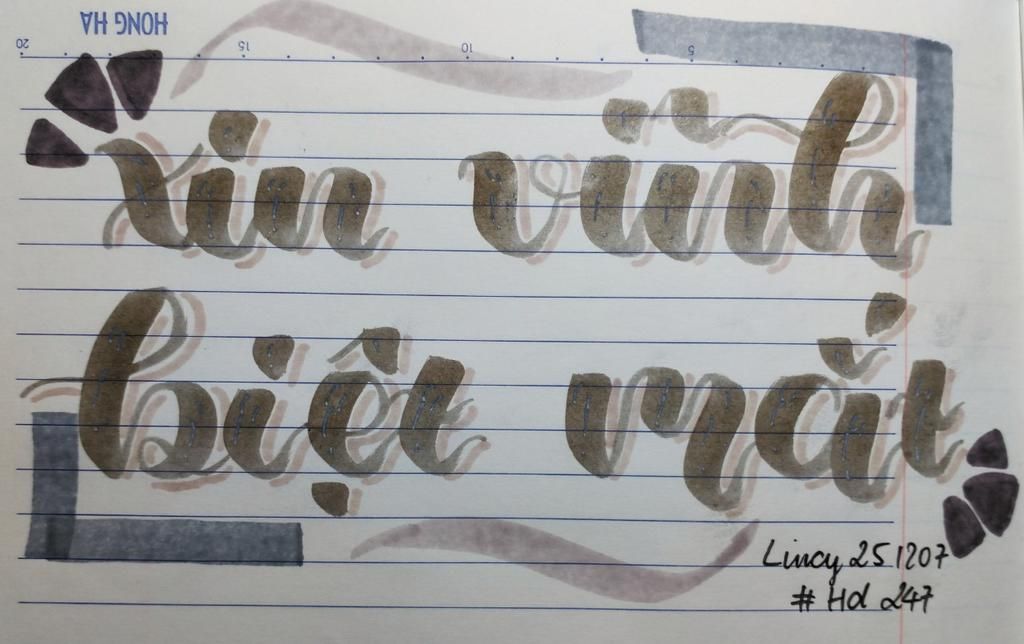 HONG HA
20 15 10 5
xin vĩnh
biệt mắt
Lincy 251207
# Hd 247